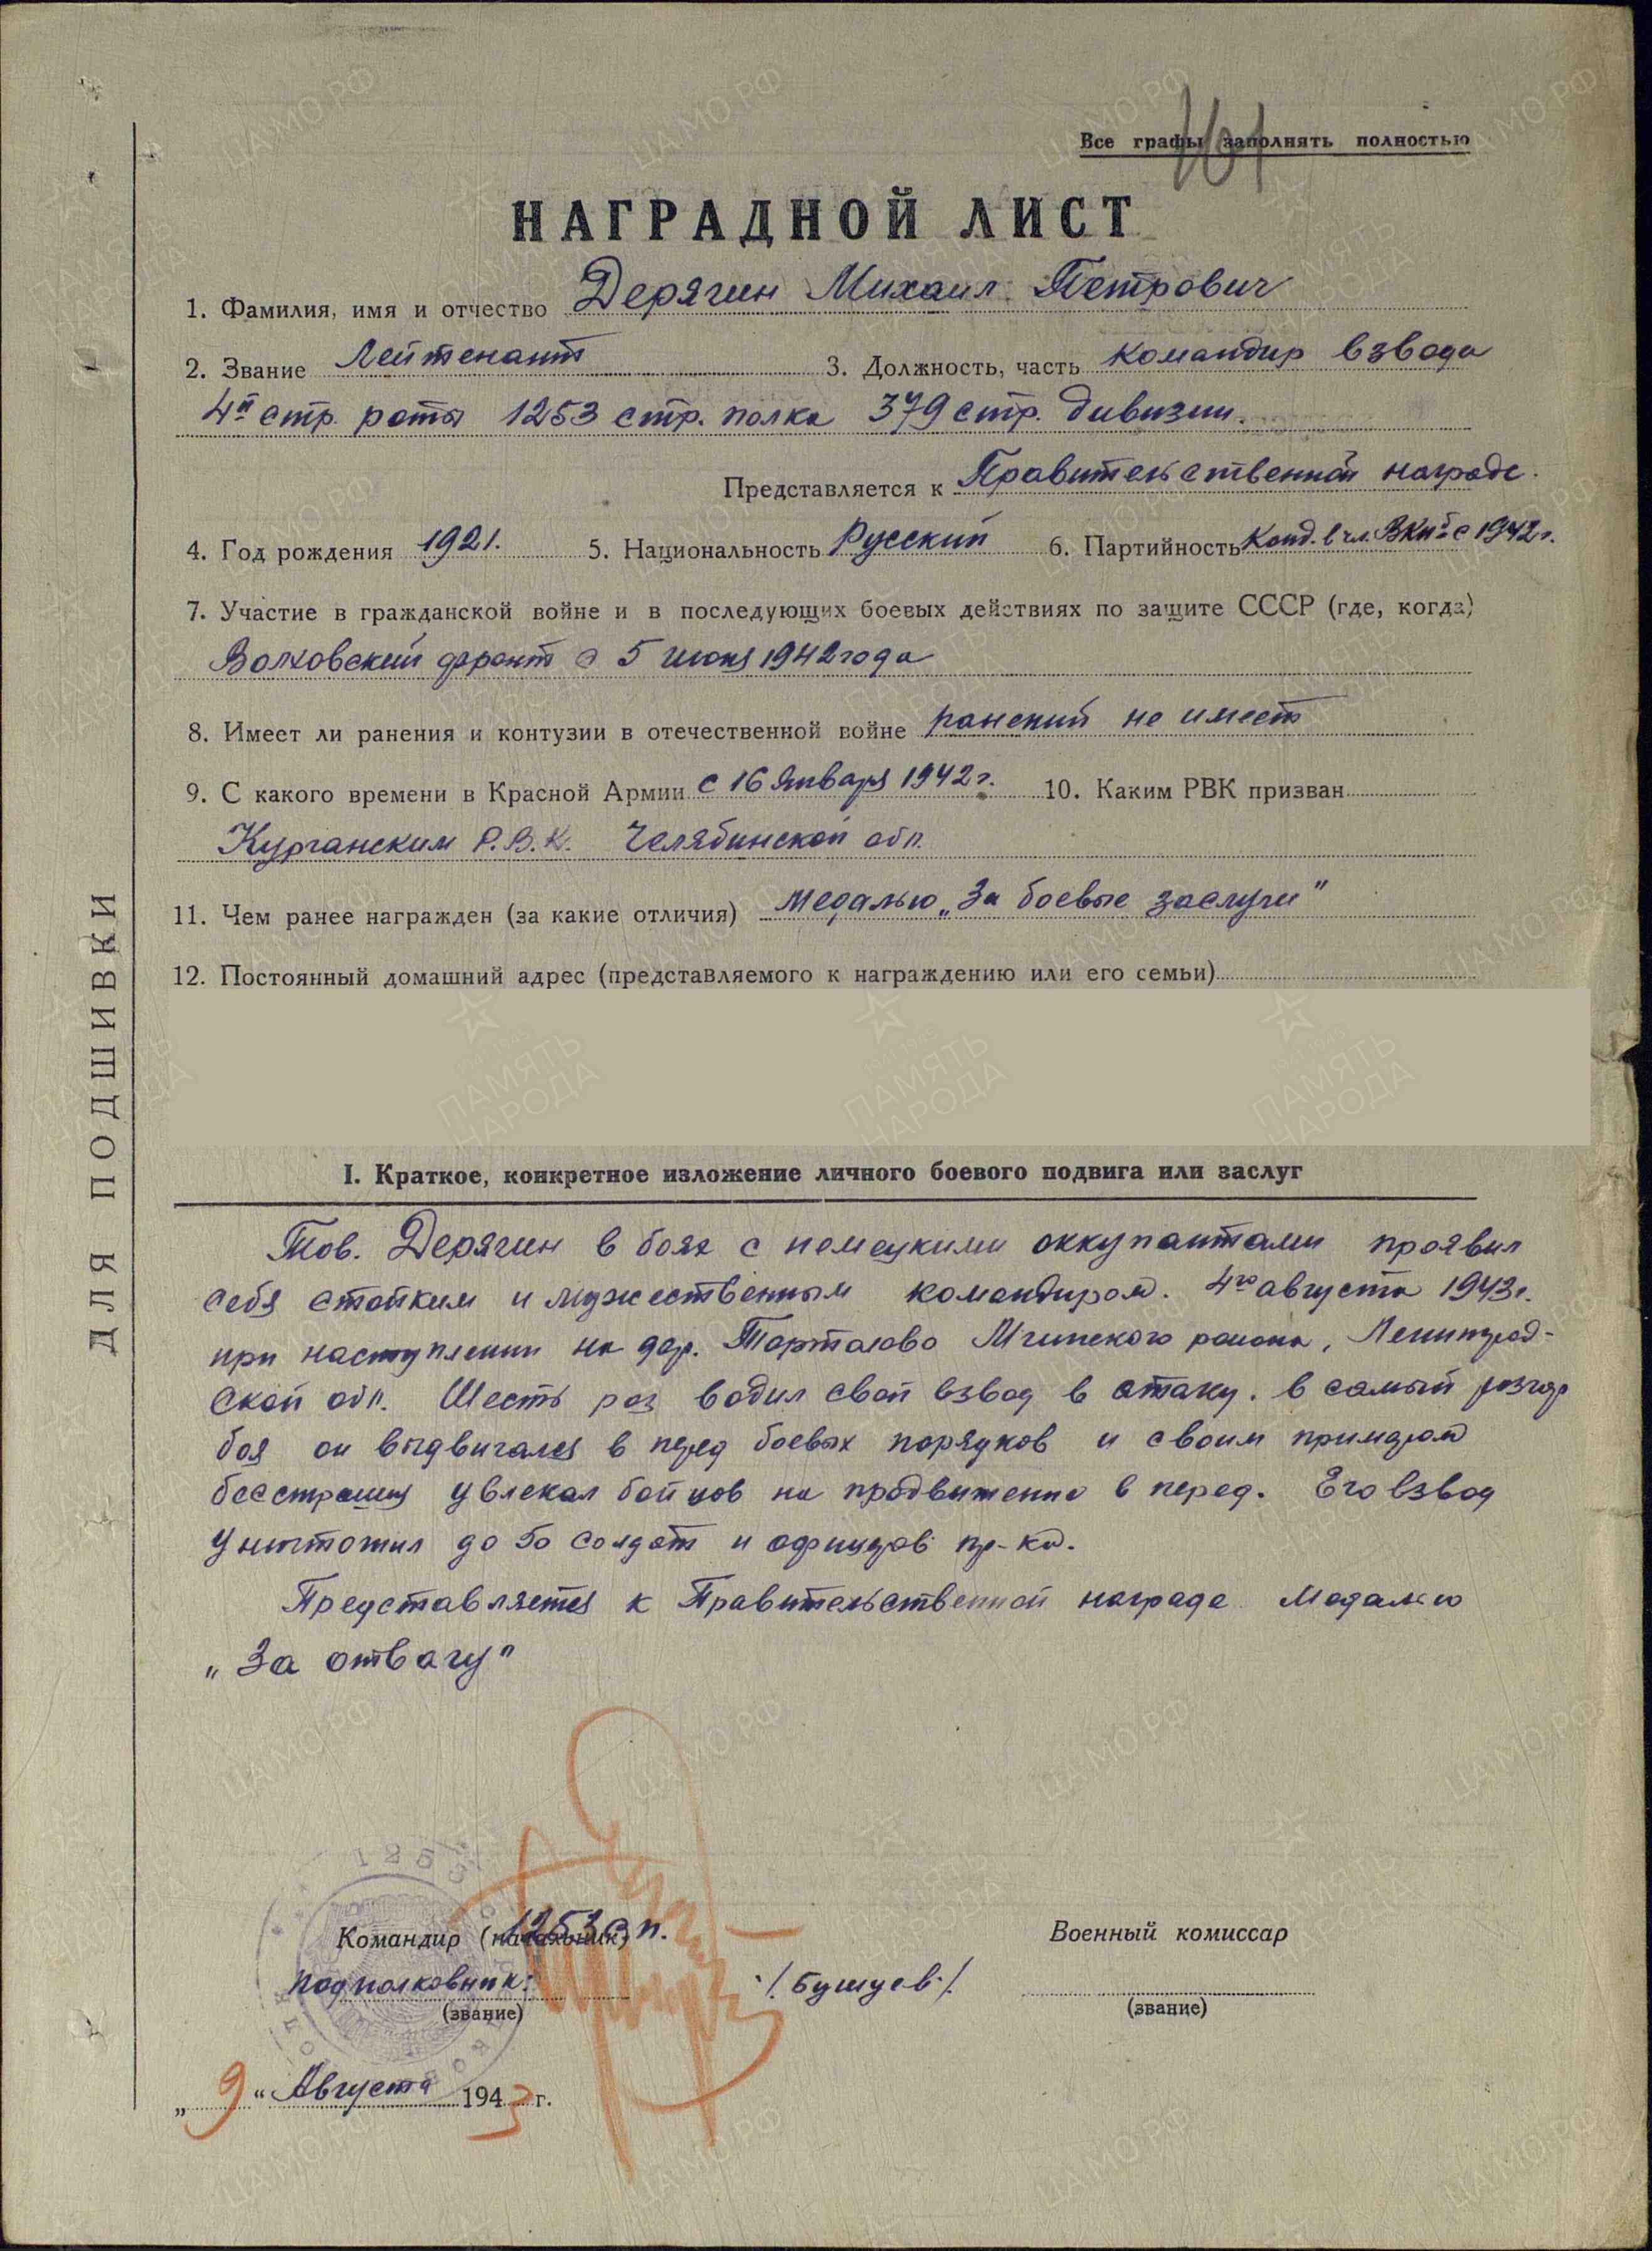 Все графы заполнять полностью
101
НАГРАДНОЙ ЛИСТ
1. Фамилия, имя и отчество Дерягин Михаил Петрович
2. Звание Лейтенант 3. Должность, часть командир взвода
4й стр. роты 1253 стр. полка 379 стр. дивизии.
Представляется к Правительственной награде.
4. Год рождения 1921. 5. Национальность Русский 6. Партийность Канд. в чл. ВКПб с 1942г.
7. Участие в гражданской войне и в последующих боевых действиях по защите СССР (где, когда)
Волховский фронт с 5 июня 1942 года
8. Имеет ли ранения и контузии в отечественной войне ранений не имеет
9. С какого времени в Красной Армии с 16 Января 1942 г. 10. Каким РВК призван
Курганским Р.В.К. Челябинской обл.
11. Чем ранее награжден (за какие отличия) медалью „За боевые заслуги"
12. Постоянный домашний адрес (представляемого к награждению или его семьи)
I. Краткое, конкретное изложение личного боевого подвига или заслуг
Тов. Дерягин в боях с немецкими оккупантами проявил
себя стойким и мужественным командиром. 4го августа 1943г.
при наступлении на дер. Торталово Мгинского района, Ленинград-
ской обл. Шесть раз водил свой взвод в атаку. в самый разгар
боя он выдвигался в перед боевых порядков и своим примером
бесстрашия увлекал бойцов на продвижение в перед. Его взвод
уничтожил до 50 солдат и офицеров пр-ка.
Представляется к Правительственной награде Медалью
„За отвагу"
1253
Командир (начальник) 1253 сп. Военный комиссар
подполковник: /Бушуев/
(звание) (звание)
„9" Августа 1943 г.
ДЛЯ ПОДШИВКИ
ЦАМО.РФ
ПАМЯТЬ НАРОДА